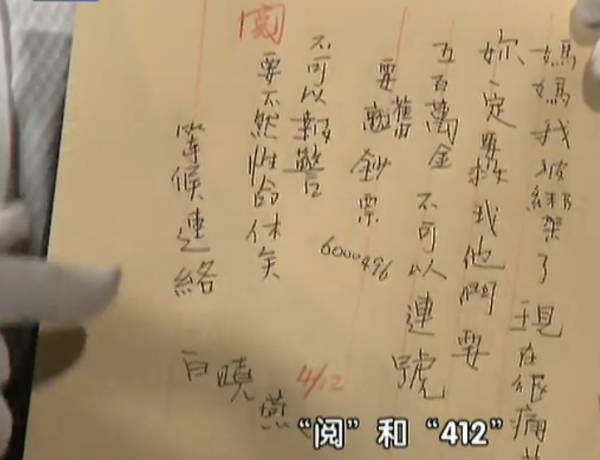 媽媽我被綁架了現在很痛苦
妳一定要救我他們要
五百萬金 不可以連號
要舊鈔票
6000496
不可以報警
閱
要不然性命休矣
等候連絡
白曉燕
4/12
“阅”和“412”